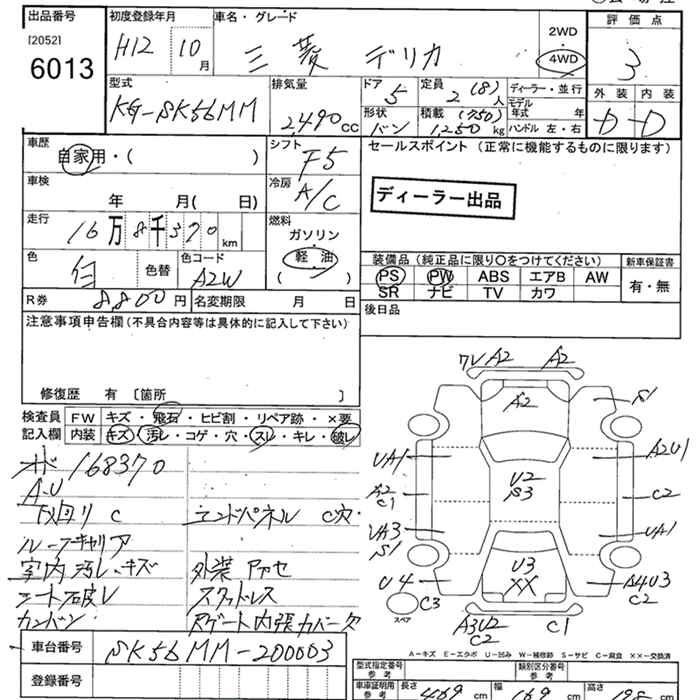 出品番号
[2052]
6013
初度登録年月
H12 10月
車名・グレード
三菱 デリカ
2WD
4WD
評価点
3
外装 内装
D D
型式
KG-SK56MM
排気量
2490cc
ドア
5
定員
2(8)人
形状
バン
積載
(750)
1250kg
ディーラー・並行
モデル年式 年
ハンドル 左・右
車歴
自家用・( )
シフト
F5
車検
年 月( 日)
冷房
A/C
走行
16万8千370km
燃料
ガソリン
軽油
( )
色
白
色替
色コード
A2W
R券
8,800円
名変期限 月 日
セールスポイント (正常に機能するものに限ります)
ディーラー出品
装備品(純正品に限り○をつけてください)
新車保証書
PS PW ABS エアB AW
SR ナビ TV カワ
有・無
後日品
注意事項申告欄(不具合内容等は具体的に記入して下さい)
修復歴 有 〔箇所 〕
検査員記入欄
FW キズ・飛石・ヒビ割・リペア跡・×要
内装 キズ・汚レ・コゲ・穴・スレ・キレ・破レ
オド 168370
A.U
下回り C エンドパネル C穴
ルーフキャリア
室内汚レ・キズ 外装アセ
シート破レ スタッドレス
カンバン Rゲート内張カバー欠
車台番号
SK56MM-200003
登録番号
ワレA2 A2
A2
S1
UA1 A2U1
U2
S3
A2
C1
C2
UA3
S1
UA1
U3
XX
U4 A4U3
C2
C3
スペア
A3U2
C2
C1
A-キズ E-エクボ U-凹み W-補修跡 S-サビ C-腐食 XX-交換済
型式指定番号
参考
類別区分番号
参考
車庫証明用
参考
長さ 469cm
幅 169cm
高さ